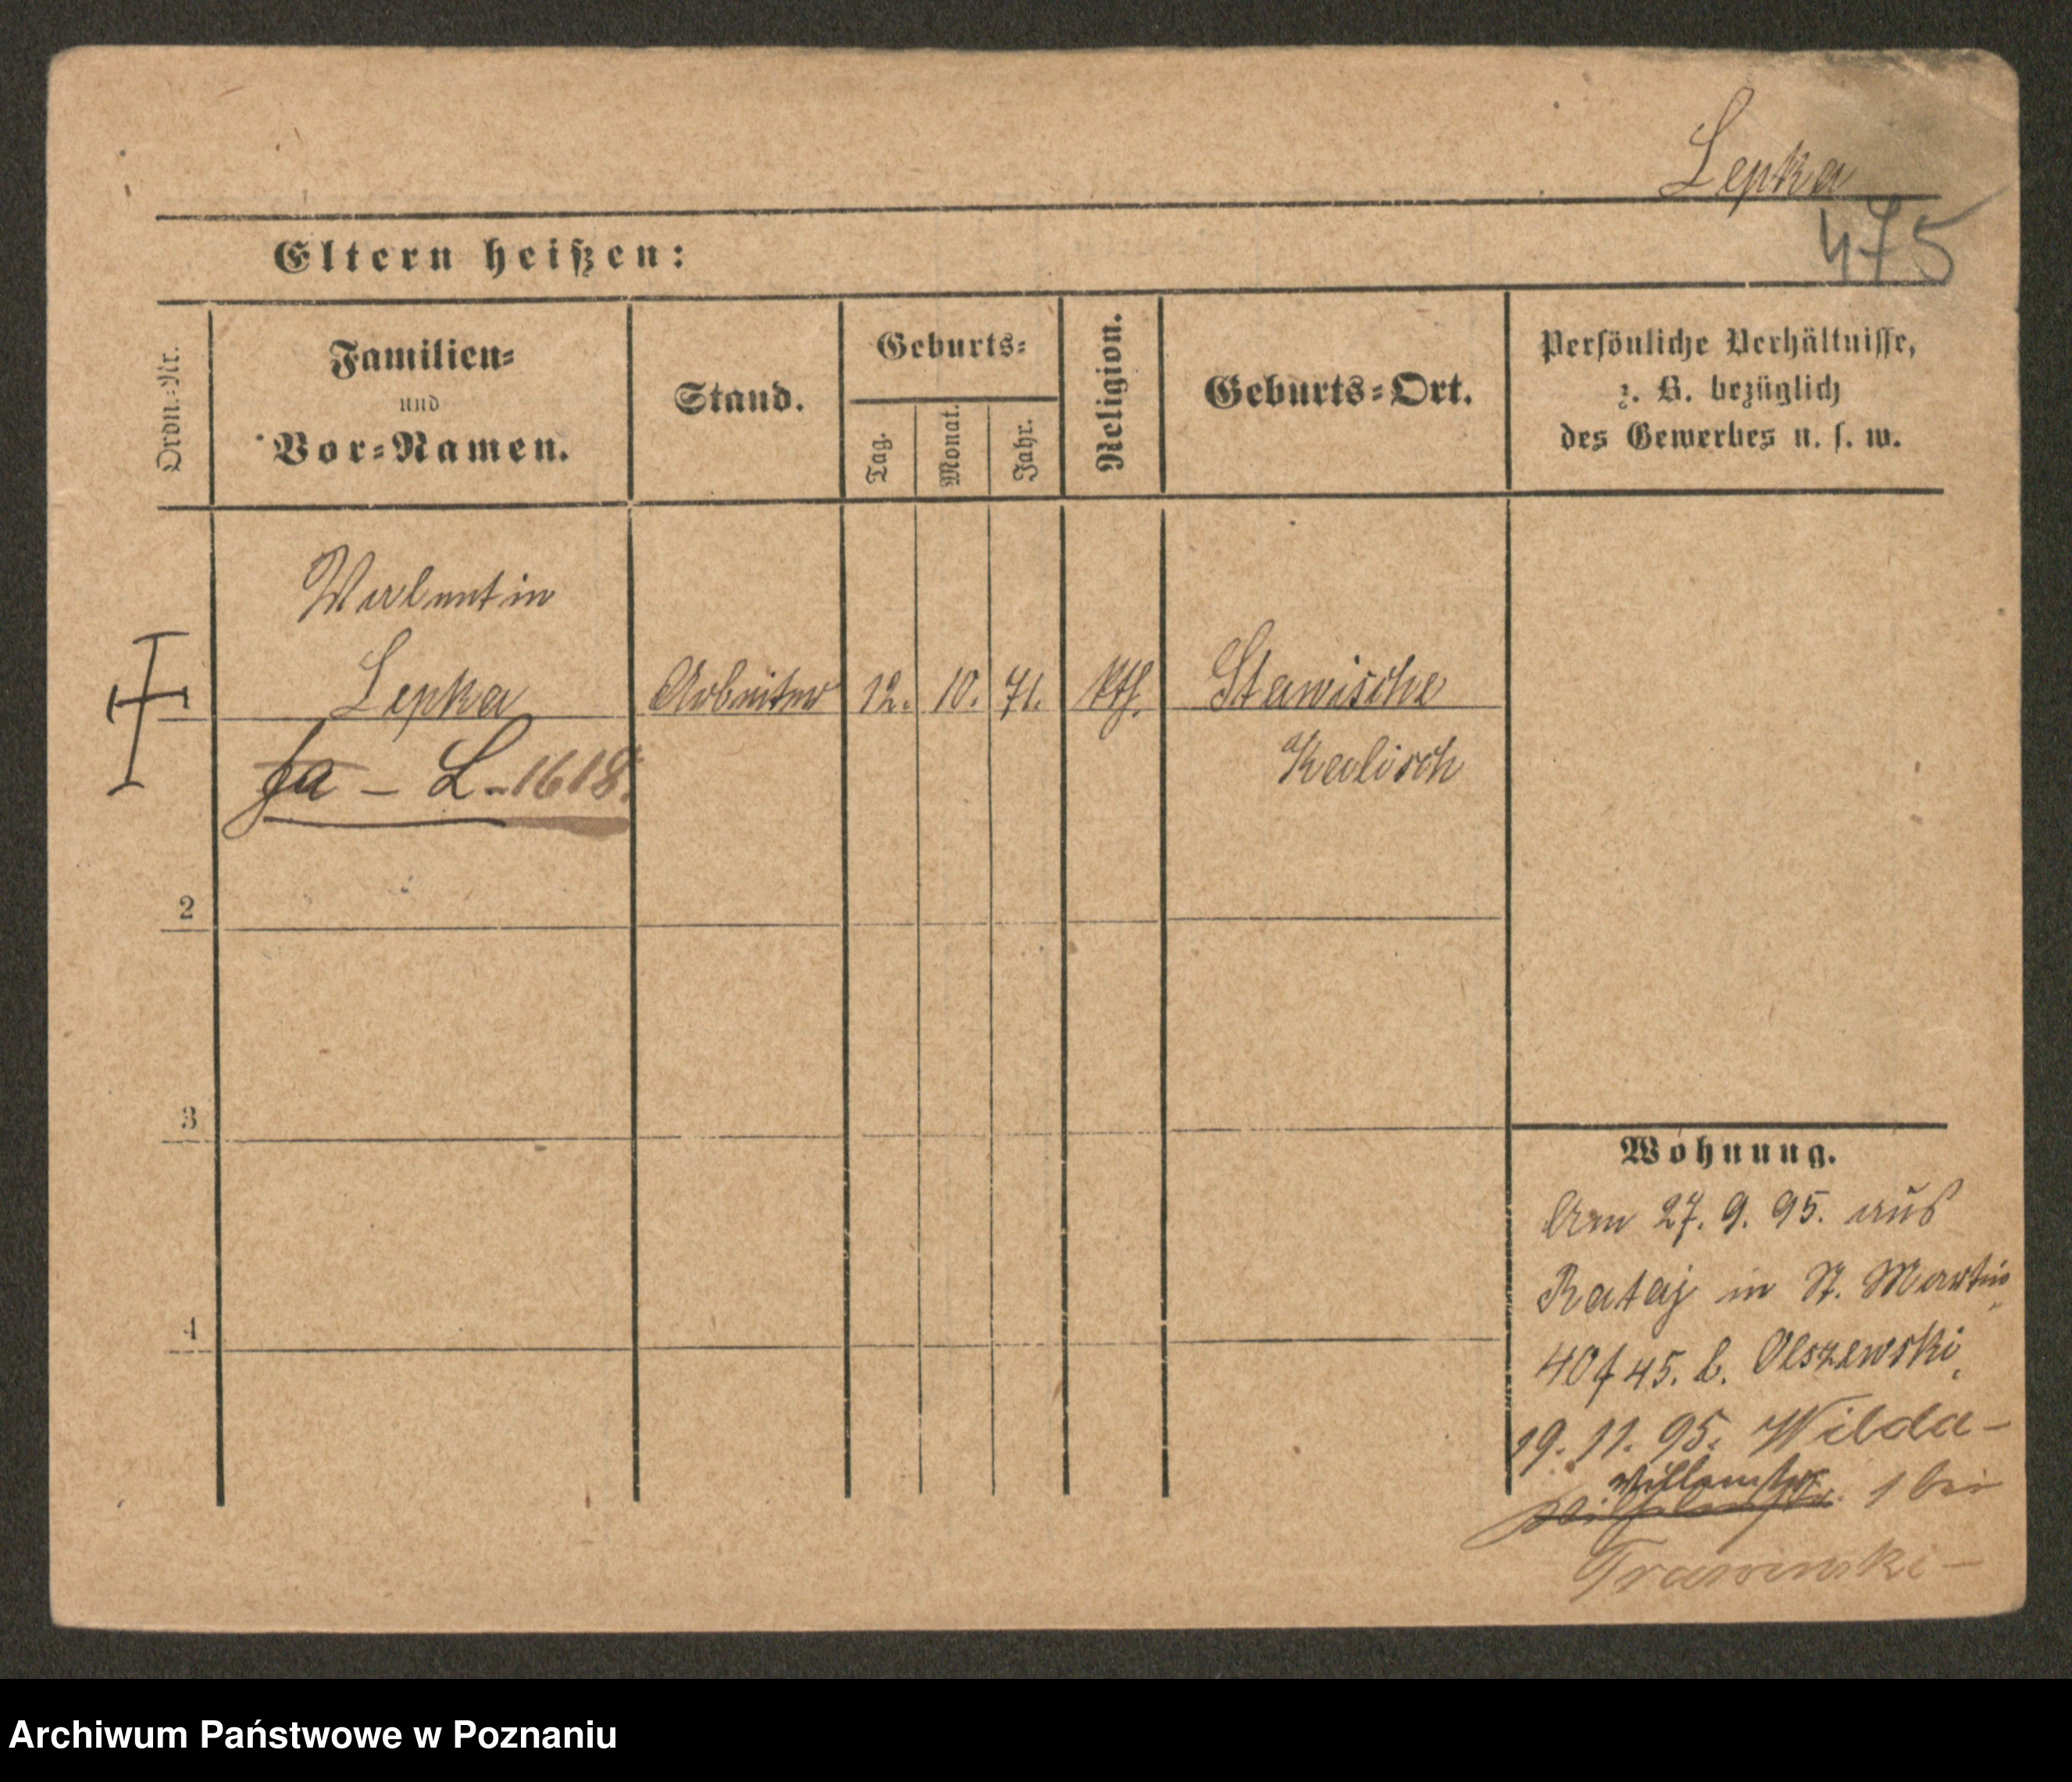 Lepka
475
Eltern heißen:
Ordn.-Nr.
Familien-
und
Vor-Namen.
Stand.
Geburts-
Tag.
Monat.
Jahr.
Religion.
Geburts-Ort.
Persönliche Verhältnisse,
z. B. bezüglich
des Gewerbes u. s. w.
Valentin
Lepka
Arbeiter
12.
10.
71.
kth.
Stawische
Kalisch
fa - L-1618.
2
3
4
Wohnung.
Am 27. 9. 95. aus
Rataj in St. Martin
40/45. b. Olszewski
19. 11. 95. Wilda-
Villenstr. 1 bei